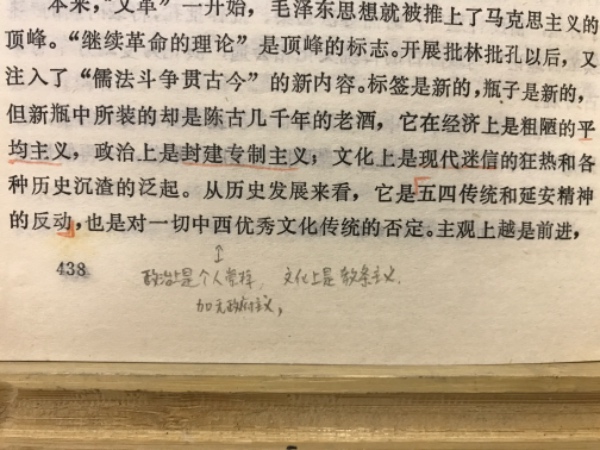 本来，“文革”一开始，毛泽东思想就被推上了马克思主义的
顶峰。“继续革命的理论”是顶峰的标志。开展批林批孔以后，又
注入了“儒法斗争贯古今”的新内容。标签是新的，瓶子是新的，
但新瓶中所装的却是陈古几千年的老酒，它在经济上是粗陋的平
均主义，政治上是封建专制主义；文化上是现代迷信的狂热和各
种历史沉渣的泛起。从历史发展来看，它是五四传统和延安精神
的反动，也是对一切中西优秀文化传统的否定。主观上越是前进，
438
政治上是个人崇拜，文化上是教条主义．
加无政府主义，